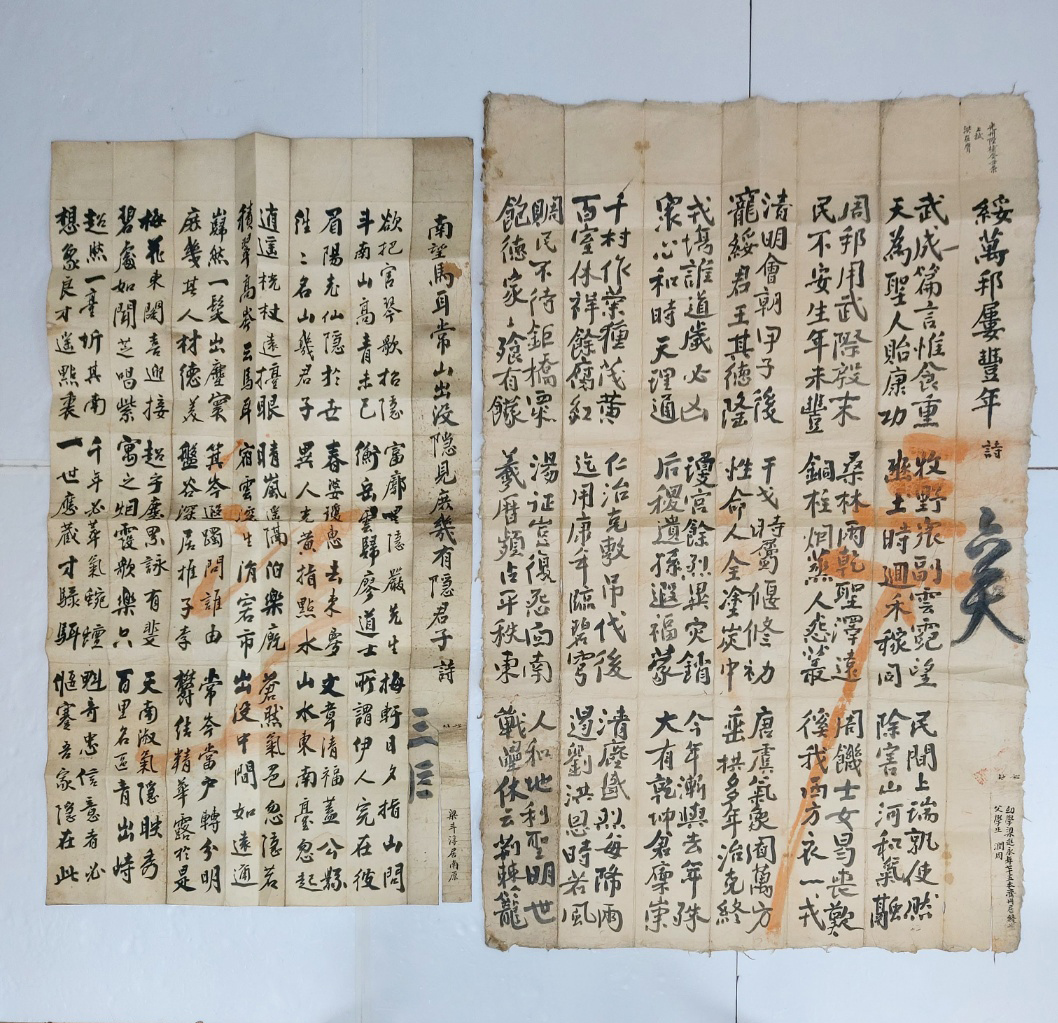 綏萬邦屢豐年 詩
武成篇言惟食重 牧野衆副雲霓望 民間上瑞孰使然
天為聖人貽康功 豳土時迴禾稼同 除害山河和氣融
周邦用武際殷末 桑林雨乾聖澤遠 周饑士女曷喪歎
民不安生年未豐 銅柱炯蒸人怨叢 徯我西方衣一戎
清明會朝甲子後 干戈時屬偃修初 唐虞氣象囿萬方
寵綏君王其德隆 性命人全塗炭中 垂拱多年治克終
戎場誰道歲必凶 瓊宮餘烈異灾銷 今年漸與去年殊
衆心和時天理通 后稷遺孫遐福蒙 大有乾坤衆禀崇
千村作業種茂黄 仁治克敷吊伐後 清塵盛烈每降雨
百室休祥餘腐紅 迄用康年臨碧穹 遏劉洪恩時若風
賙民不待鉅橋粟 湯征豈復怨南 人和地利聖明世
飽德家々飱有饛 羲曆頻占平秩東 戢休云荊棘籠
南望馬耳常山出没隱見庶幾有隱君子詩
梁斗淳居南原
欲把官琴歌招隱 富廓嘿隱嚴先生 梅軒日夕指山問
斗南山高青未已 衡岳雲歸廖道士 所謂伊人宛在彼
眉陽老仙隱於世 春婆去來夢 文章清福蓋公縣
往々名山幾君子 異人老黄指點水 山水東南臺忽起
逍遙杖遠擡眼 晴嵐遙隔伯樂廐 蒼然氣色忽隱若
積翠高岑云馬耳 宿雲深生市 出没中間如遠通
巋然一髮出塵寰 箕岑遐躅問誰由 常岑當户轉分明
庶幾其人材德美 盤谷深居推子李 欝佶精華露於是
梅花東閣喜迎接 超乎塵累詠有斐 天南淑氣隱映秀
碧處如聞芝唱紫 寓之烟霞歌樂只 百里名區肯出峙
超然一臺坼其南 千年必萃氣蜿蟺 魁奇忠信意者必
想象良才遙點裏 一世應藏才騄駬 偃蹇吾家隱在此